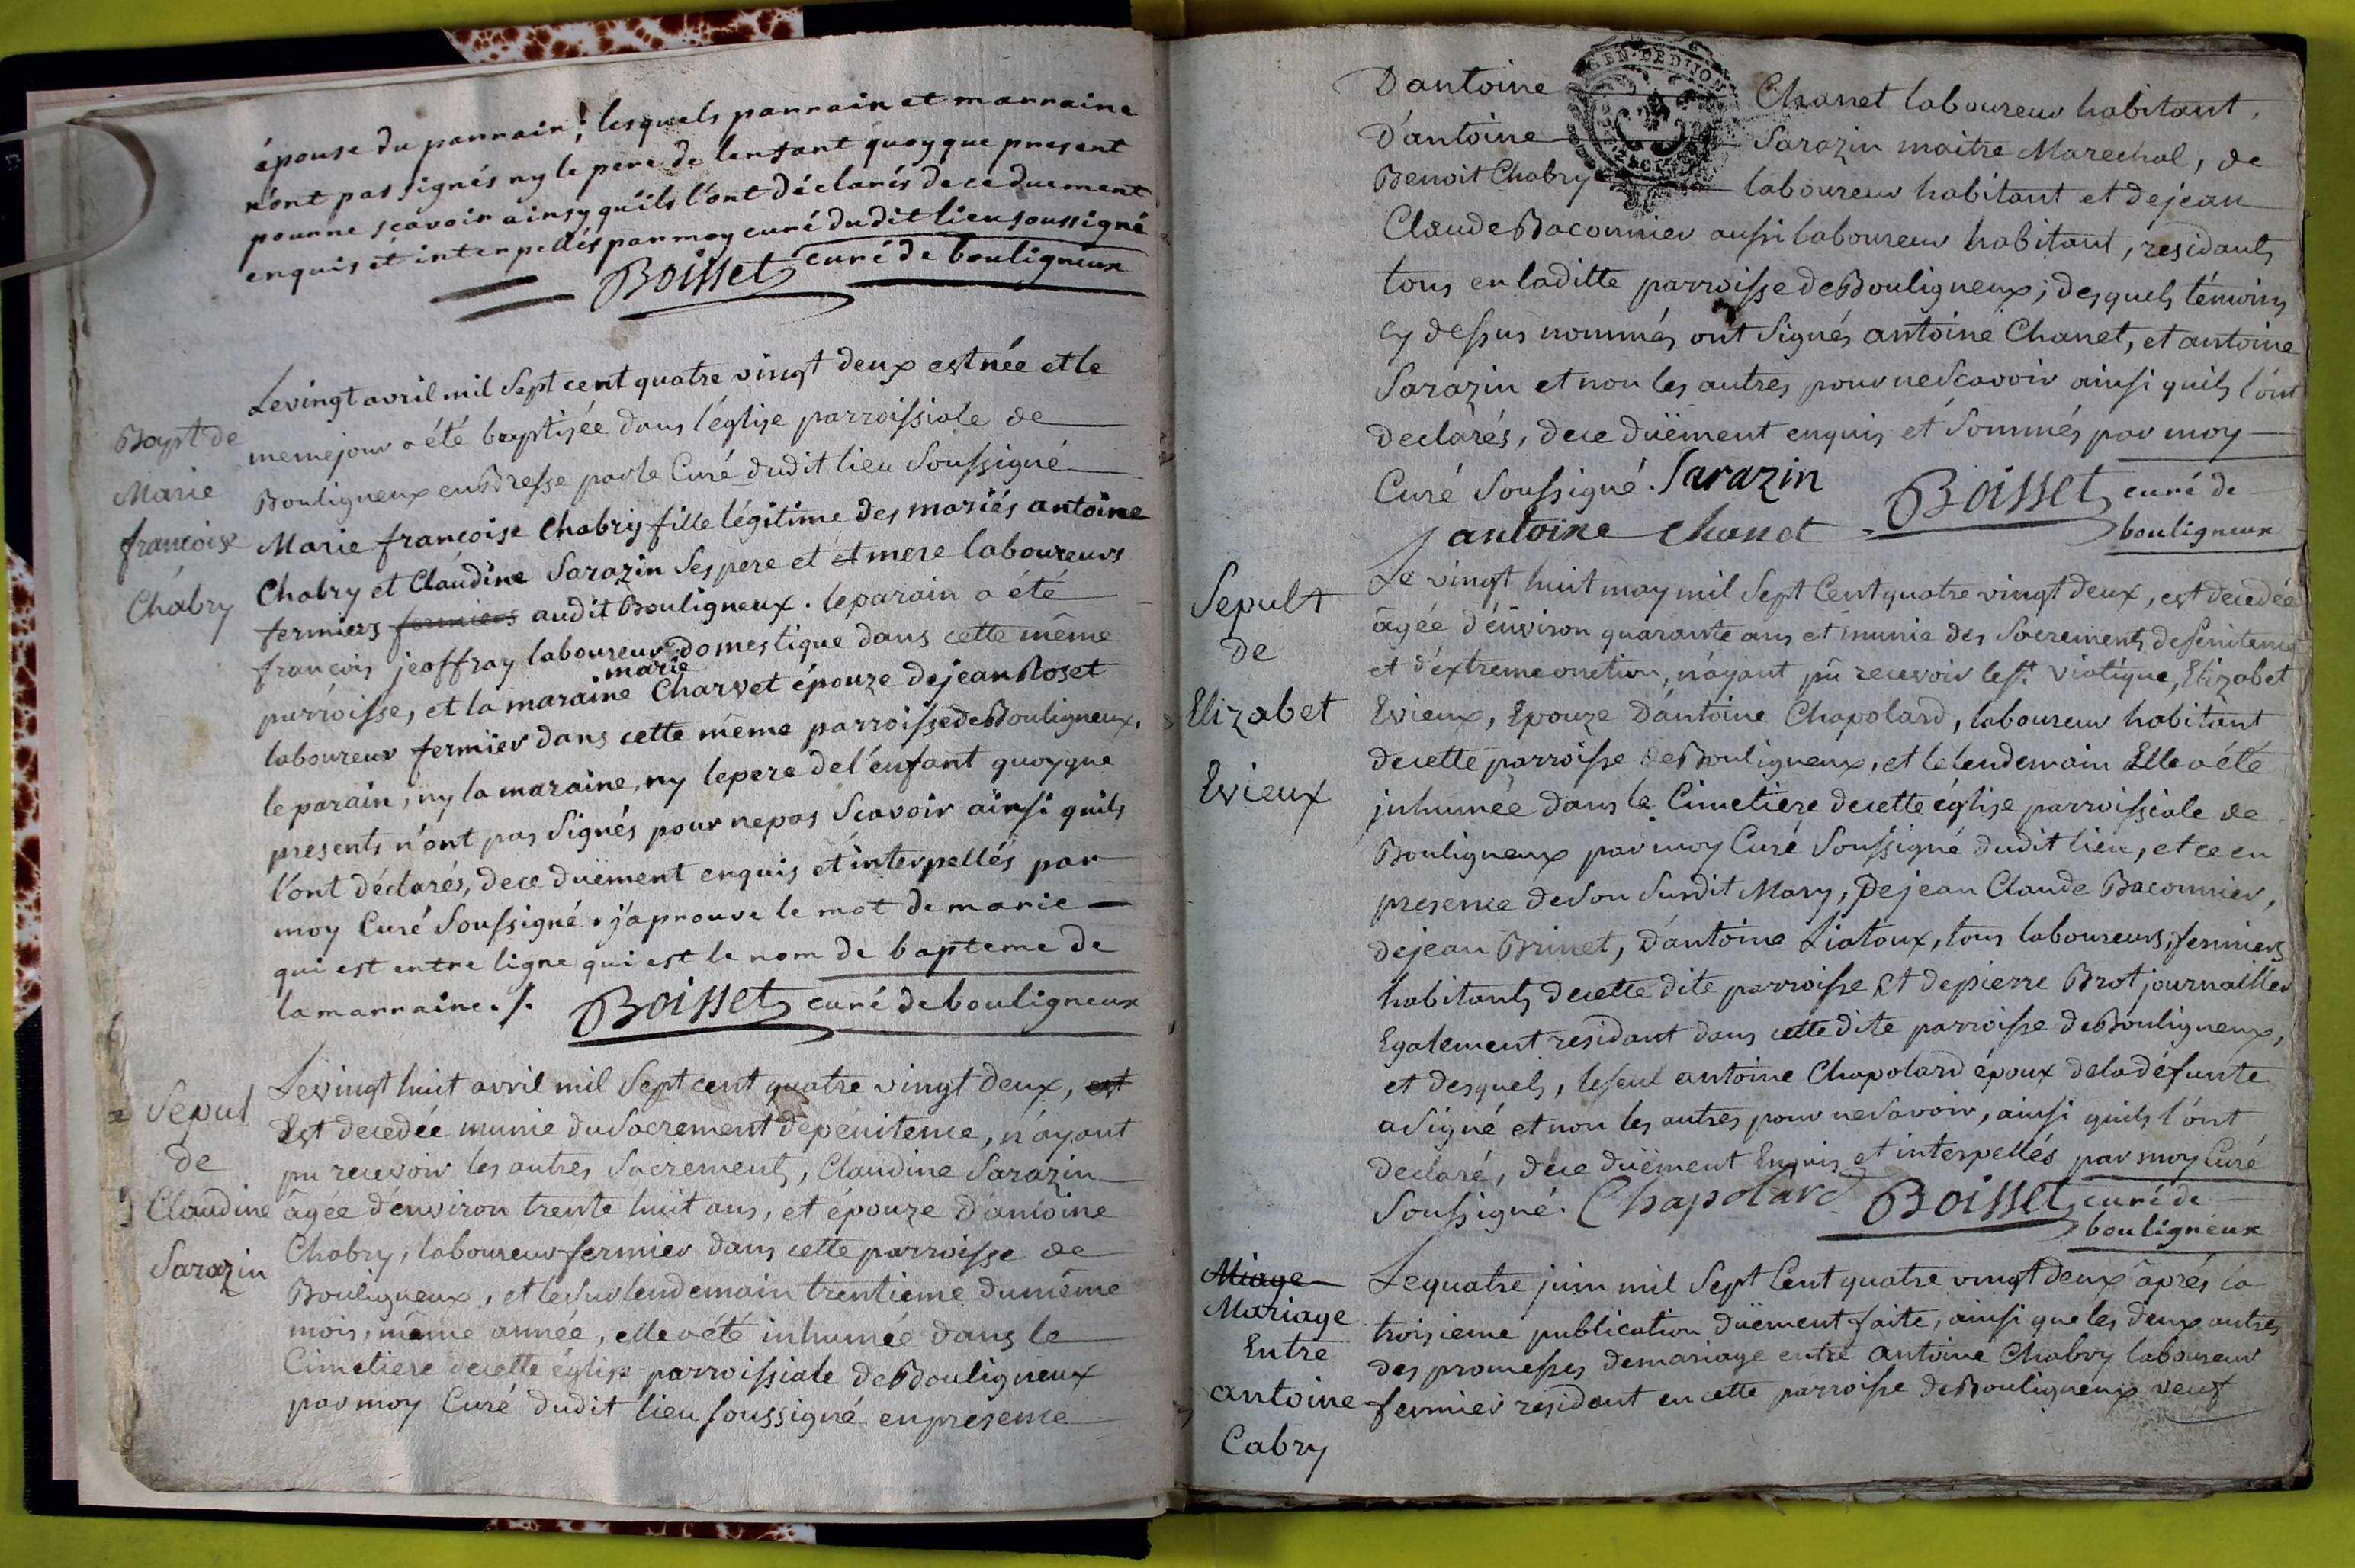 épouse du parrain; lesquels parrain et marraine
n'ont pas signés ny le pere de lenfant quoyque present
pour ne sçavoir ainsy qu'ils l'ont déclarés de ce duement
enquis et interpellés par moy curé dudit lieu soussigné
Boisset curé de bouligneux
Bapt de
Marie
francoise
Chabry
Le vingt avril mil Sept cent quatre vingt deux est née et le
meme jour a été baptisée dans l'église parroissiale de
Bouligneux en Bresse par le Curé dudit lieu Soussigné
Marie françoise Chabry fille légitime des mariés antoine
Chabry et Claudine Sarazin Ses pere et et mere laboureurs
fermiers fermiers audit Bouligneux. le parain a été
francois jeoffray laboureur domestique dans cette même
marie
parroisse, et la maraine Charvet épouze de jean Roset
laboureur fermier dans cette même parroisse de Bouligneux.
le parain, ny la maraine, ny le pere de l'enfant quoyque
presents n'ont pas Signés pour ne pas Scavoir ainsi quils
l'ont déclarés, de ce duëment enquis et interpellés par
moy Curé Soussigné. j'aprouve le mot de marie
qui est entre ligne qui est le nom de bapteme de
la marraine./. Boisset curé de bouligneux
Sepul
de
Claudine
Sarazin
Le vingt huit avril mil Sept cent quatre vingt deux, est
Est decedée munie du Sacrement de pénitence, n'ayant
pu recevoir les autres Sacrements, Claudine Sarazin
âgée d'environ trente huit ans, et épouze d'antoine
Chabry, laboureur fermier dans cette parroisse de
Bouligneux, et le Surlendemain trentieme du même
mois, même année, elle a été inhumée dans le
Cimetiere de cette église parroissiale de Bouligneux
par moy Curé dudit lieu soussigné en presence
D'antoine Chanet laboureur habitant,
D'antoine Sarazin maitre Marechal, de
Benoit Chabry laboureur habitant et de jean
Claude Baconnier aussi laboureur habitant, residants
tous en laditte parroisse de Bouligneux; desquels témoins
cy dessus nommés ont Signés antoine Chanet, et antoine
Sarazin et non les autres pour ne Scavoir ainsi quils l'ont
declarés, de ce duëment enquis et Sommés par moy
Curé Soussigné. Sarazin
antoine chanet Boisset curé de
bouligneux
Sepult
de
Elizabet
Evieux
Le vingt huit may mil Sept Cent quatre vingt deux, est decedée
âgée d'environ quarante ans et munie des Sacrements de penitence
et d'extreme onction, n'ayant pû recevoir le St. viatique, Elizabet
Evieux, Epouze D'antoine Chapolard, laboureur habitant
de cette parroisse de Bouligneux, et le lendemain Elle a été
inhumée dans le Cimetiere de cette église parroissiale de
Bouligneux par moy Curé Soussigné dudit lieu, et ce en
presence de Son Susdit Mary, De jean Claude Baconnier,
de jean Brinet, D'antoine Liatoux, tous laboureurs, fermiers
habitants de cette dite parroisse Et de pierre Brot journaillier
Egalement residant dans cette dite parroisse de Bouligneux,
et desquels, le Seul antoine Chapolard époux de la défunte
a Signé et non les autres pour ne Savoir, ainsi quils l'ont
declaré, de ce duëment Enquis et interpellés par moy Curé
Soussigné. Chapolard Boisset curé de
bouligneux
Miage
Mariage
Entre
antoine
Cabry
Le quatre juin mil Sept Cent quatre vingt deux aprés la
troisieme publication duëment faite, ainsi que les deux autres
des promesses de mariage entre antoine Chabry laboureur
fermier residant en cette parroisse de Bouligneux veuf